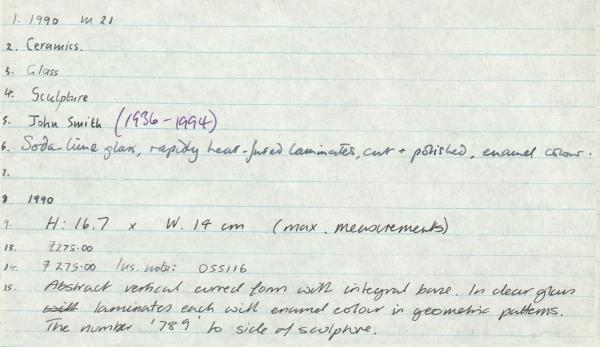 1. 1990 M 21
2. Ceramics.
3. Glass
4. Sculpture
5. John Smith (1936-1994)
6. Soda-lime glass, rapidly heat-fused laminates, cut + polished, enamel colour.
7.
8 1990
9. H: 16.7 x W. 14 cm (max. measurements)
13. £275.00
14. £275.00 Ins. note: OSS116
15. Abstract vertical curved form with integral base. In clear glass
with laminates each with enamel colour in geometric patterns.
The number '789' to side of sculpture.